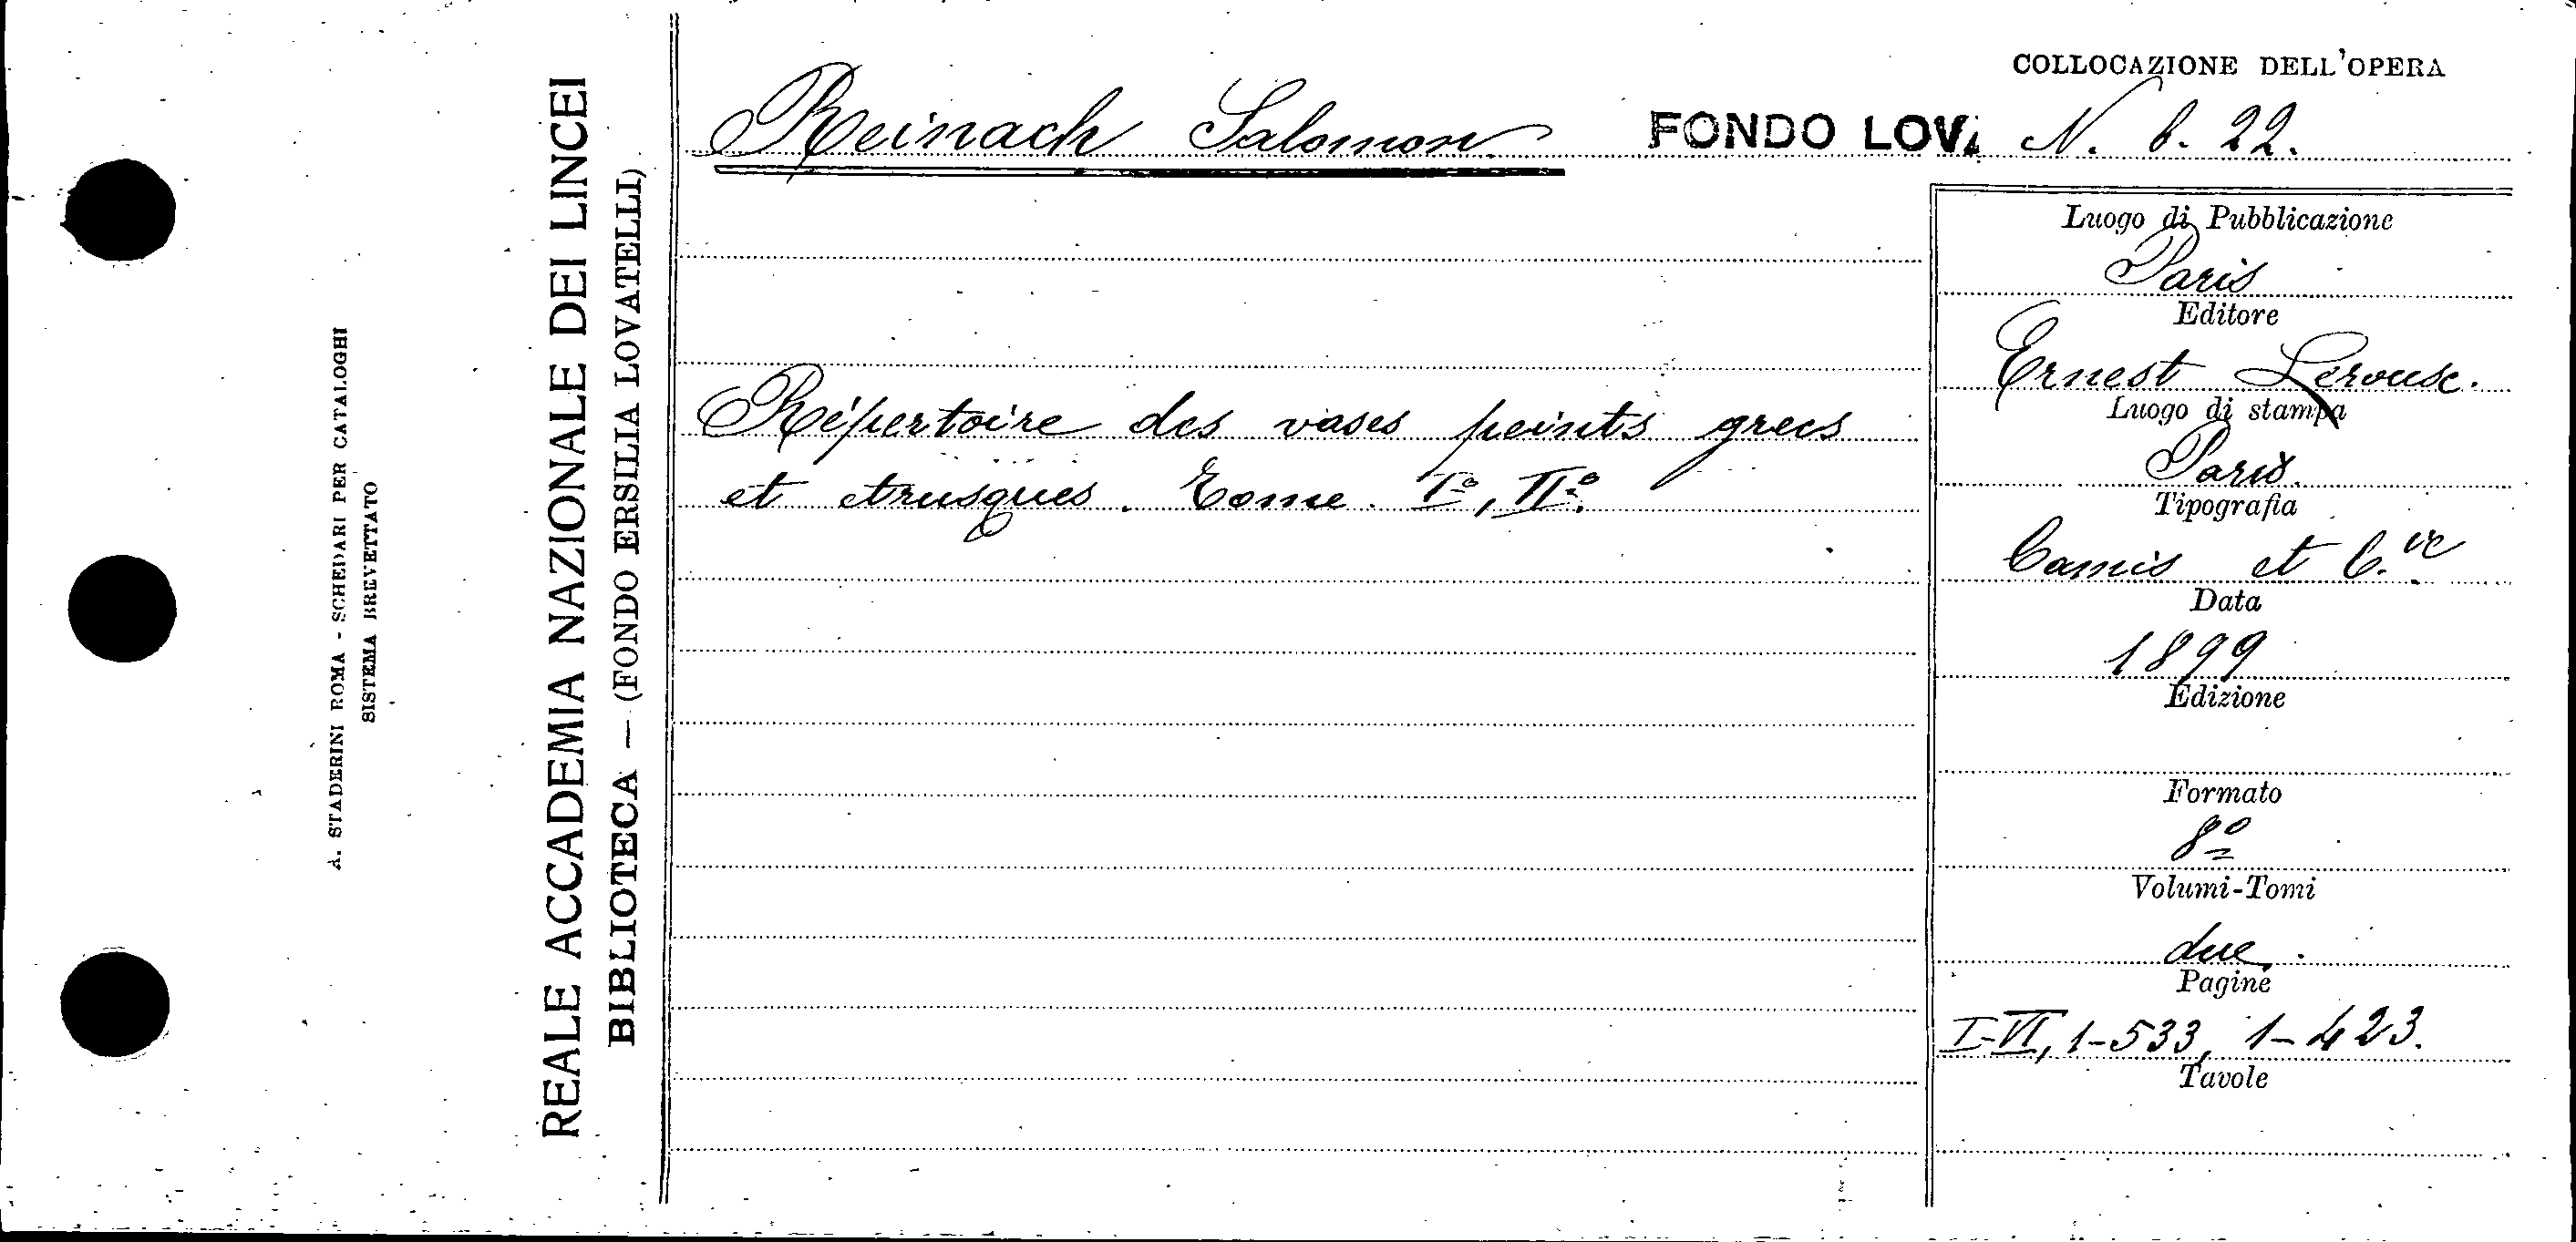 A. STADERINI ROMA - SCHEDARI PER CATALOGHI
SISTEMA BREVETTATO
REALE ACCADEMIA NAZIONALE DEI LINCEI
BIBLIOTECA — (FONDO ERSILIA LOVATELLI)
COLLOCAZIONE DELL'OPERA
Reinach Salomon FONDO LOVA N. 6. 22.
Répertoire des vases peints grecs
et étrusques. Tome. Iº, IIº.
Luogo di Pubblicazione
Paris
Editore
Ernest Lerouse.
Luogo di stampa
Paris.
Tipografia
Camis et C.ie
Data
1899
Edizione
Formato
8º
Volumi-Tomi
due.
Pagine
I-VI, 1-533, 1-423.
Tavole